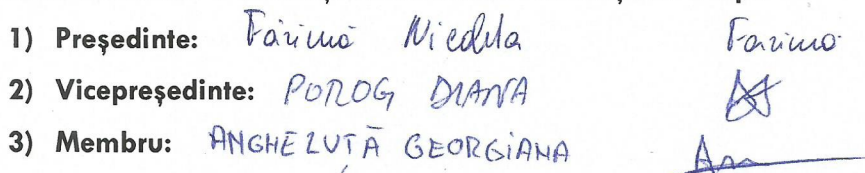 1) Președinte: Fărimă Nicoleta Farima
2) Vicepreședinte: POROG DIANA
3) Membru: ANGHELUȚĂ GEORGIANA An